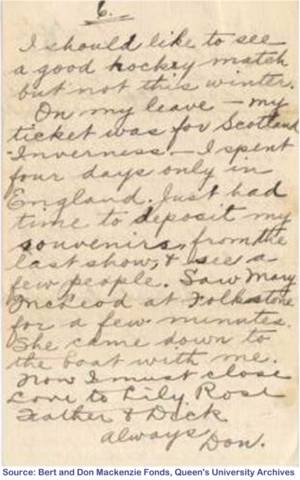 6.
I should like to see
a good hockey match
but not this winter.
On my leave – my
ticket was for Scotland
-Inverness. – I spent
four days only in
England. Just had
time to deposit my
souvenirs, from the
last show, & see a
few people. Saw Mary
McLeod at Folkstone
for a few minutes.
She came down to
the boat with me.
Now I must close
Love to Lily Rose
Father & Dick
always Don.
Source: Bert and Don Mackenzie Fonds, Queen's University Archives